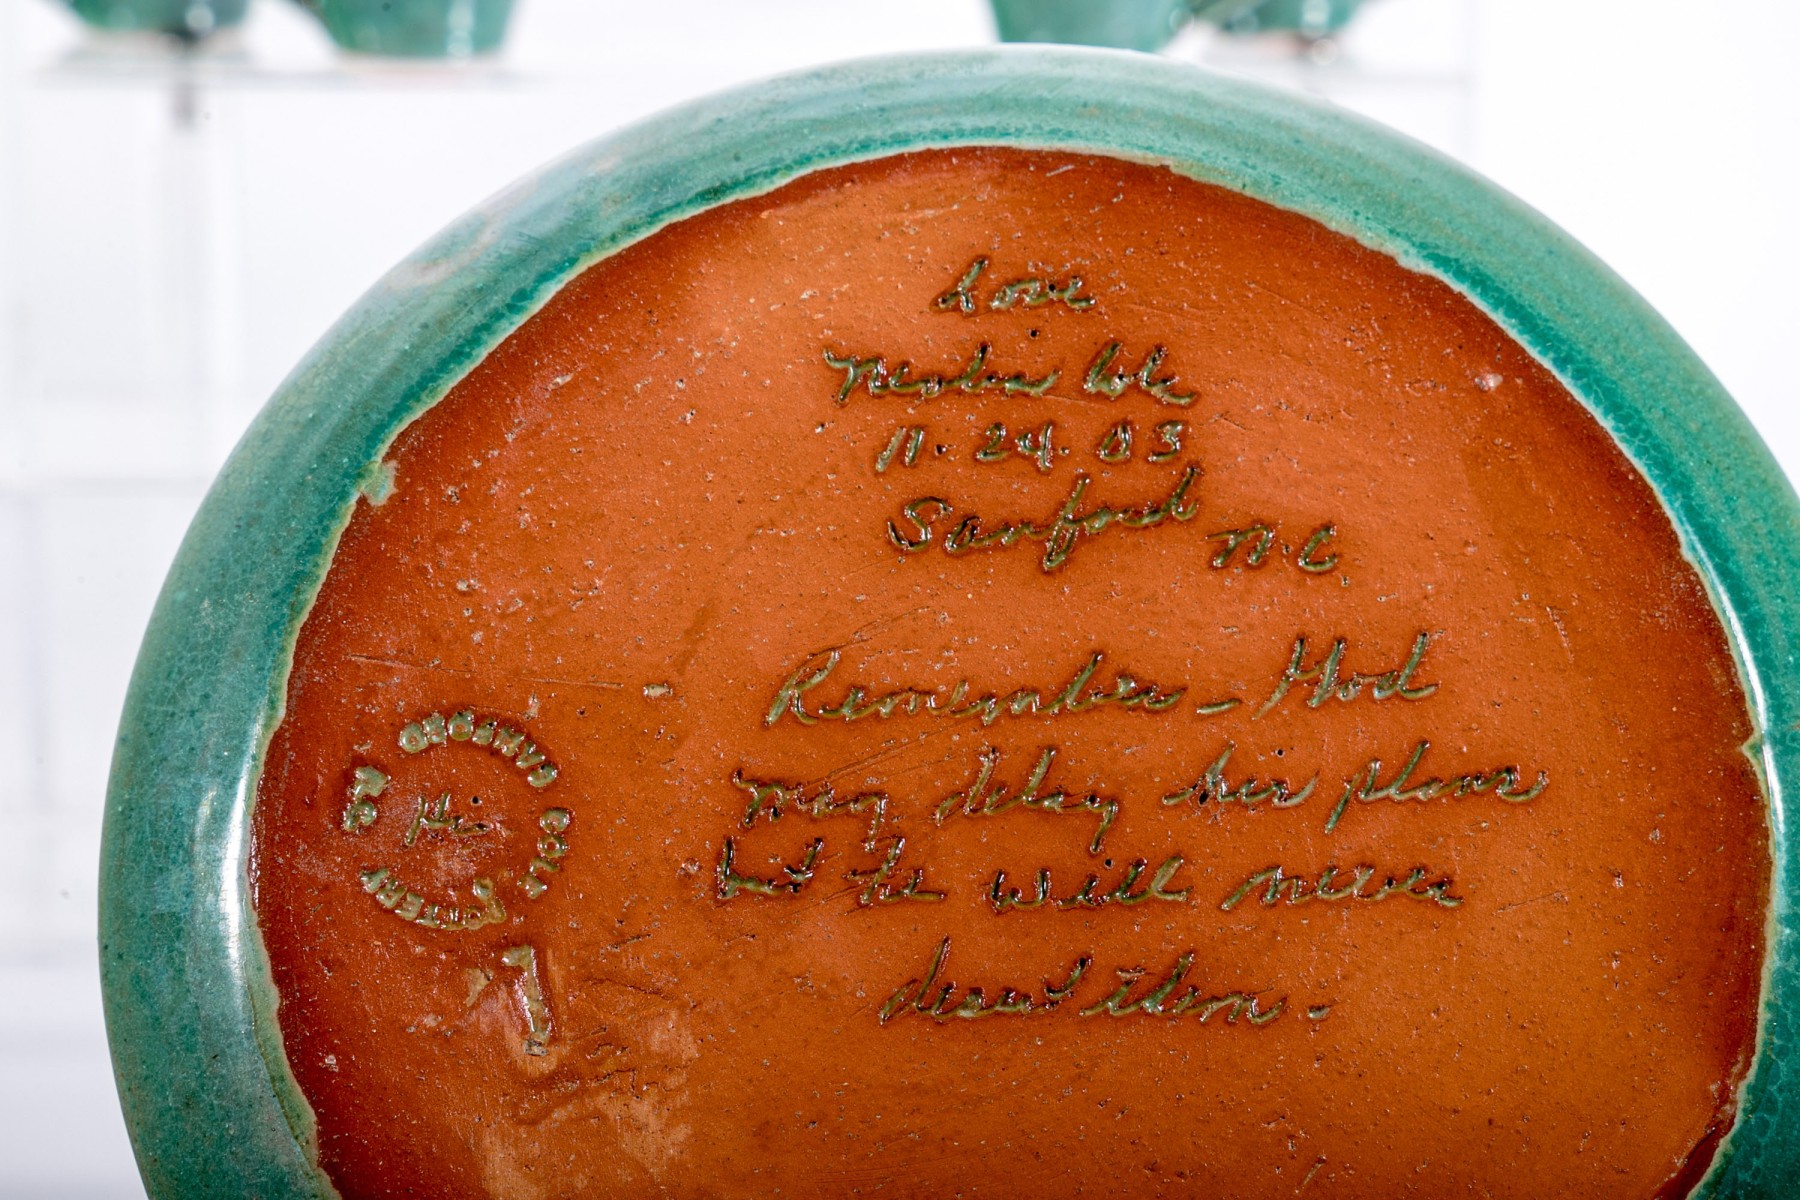 Love
Neolia Cole
11.24.03
Sanford N.C.
Remember - God
may delay his plans
but He will never
desert them -
COLE POTTERY SANFORD